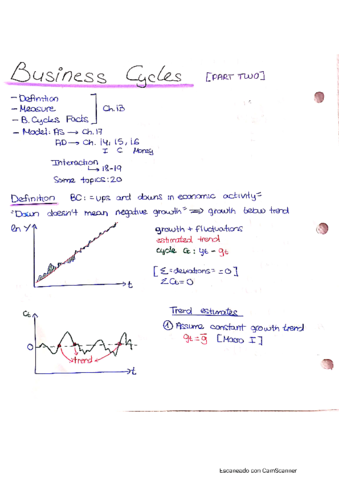 Business Cycles [PART TWO]
- Definition
- Measure
- B. Cycles Facts
Ch.13
- Model: AS → Ch. 17
AD → Ch. 14, 15, 16
I C Money
Interaction
↳ 18-19
Some topics: 20
Definition BC: = ups and downs in economic activity =
"Down doesn't mean negative growth" ⇒ growth below trend
ln Y
t
growth + fluctuations
estimated trend
cycle Ct: yt - gt
[Σ = deviations = = 0]
ΣCt = 0
Ct
0
trend
t
Trend estimates
① Assume constant growth trend
gt = g̅ [Macro I]
Escaneado con CamScanner